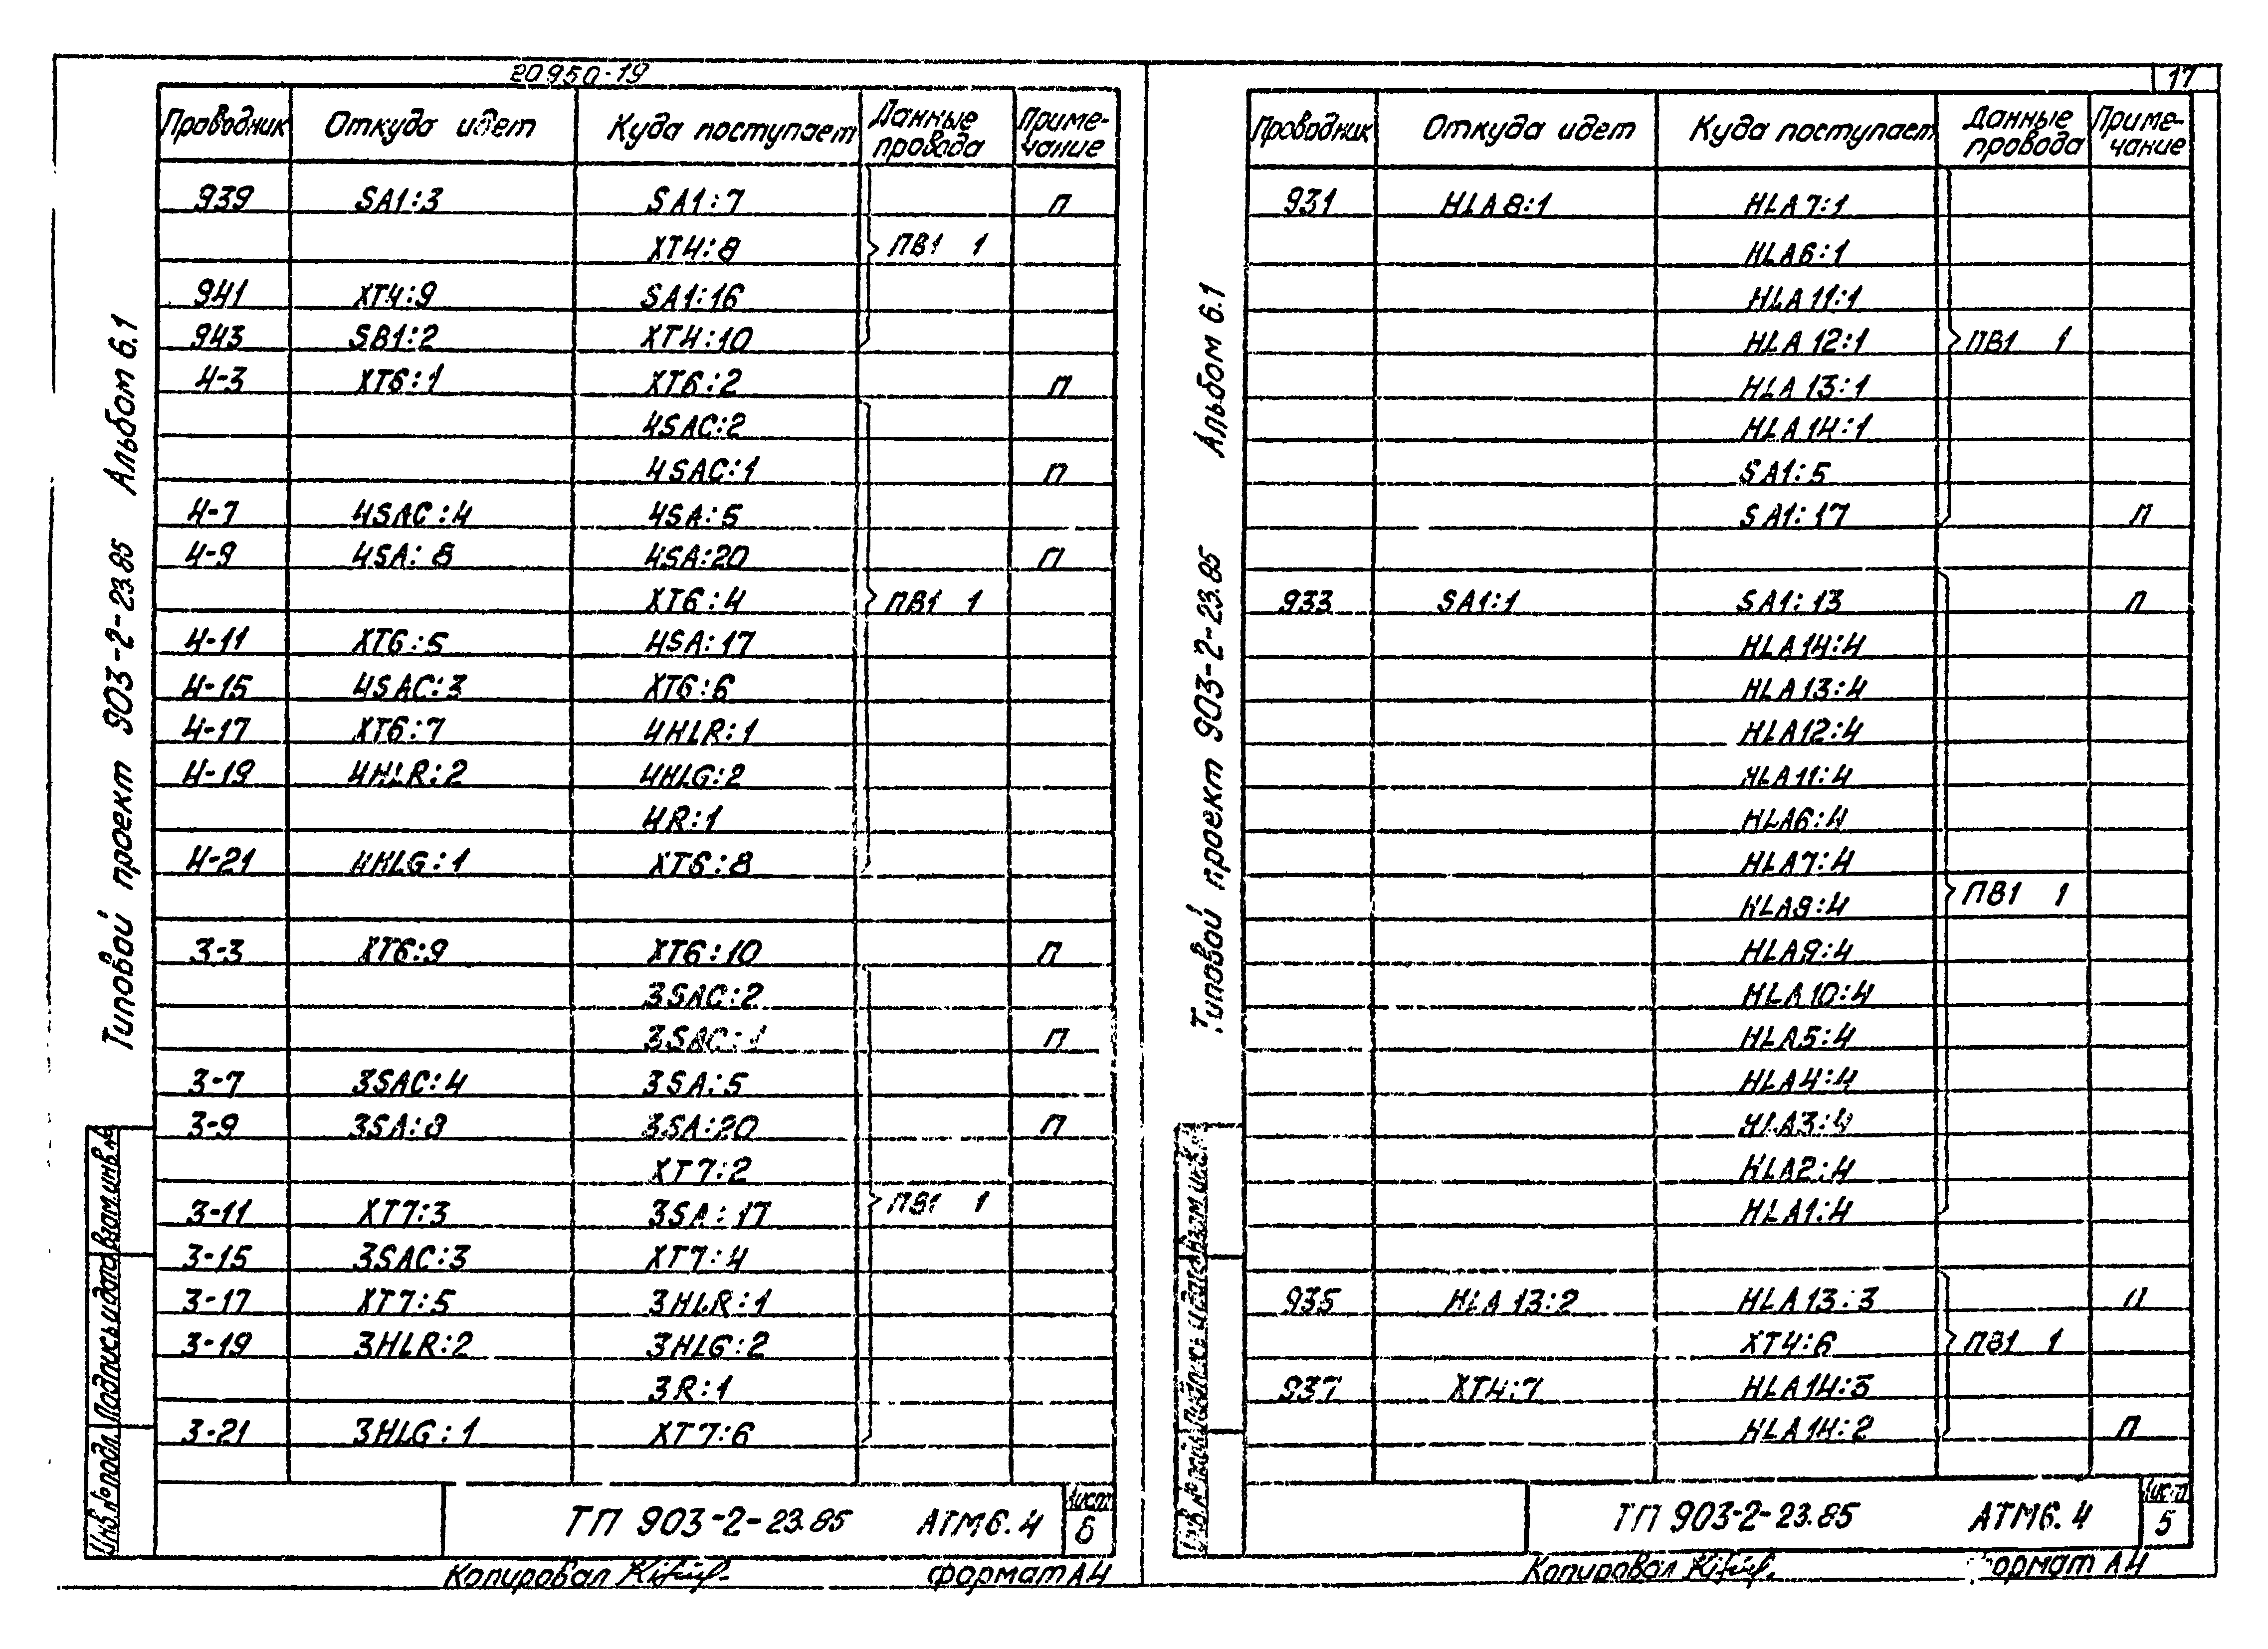 20950-19
17
Проводник Откуда идет Куда поступает Данные провода Приме-чание
939 SA1:3 SA1:7 П
XT4:8 ПВ1 1
941 XT4:9 SA1:16
943 SB1:2 XT4:10
4-3 XT6:1 XT6:2 П
4SAC:2
4SAC:1 П
4-7 4SAC:4 4SA:5
4-9 4SA:8 4SA:20 П
XT6:4 ПВ1 1
4-11 XT6:5 4SA:17
4-15 4SAC:3 XT6:6
4-17 XT6:7 4HLR:1
4-19 4HLR:2 4HLG:2
4R:1
4-21 4HLG:1 XT6:8
3-3 XT6:9 XT6:10 П
3SAC:2
3SAC:1 П
3-7 3SAC:4 3SA:5
3-9 3SA:8 3SA:20 П
XT7:2
3-11 XT7:3 3SA:17 ПВ1 1
3-15 3SAC:3 XT7:4
3-17 XT7:5 3HLR:1
3-19 3HLR:2 3HLG:2
3R:1
3-21 3HLG:1 XT7:6
ТП 903-2-23.85 АТМ6.4 Лист 6
Копировал
формат А4
Типовой проект 903-2-23.85 Альбом 6.1
Инв.№подл. Подпись и дата Взам.инв.№
Проводник Откуда идет Куда поступает Данные провода Приме-чание
931 HLA8:1 HLA7:1
HLA6:1
HLA11:1
HLA12:1 ПВ1 1
HLA13:1
HLA14:1
SA1:5
SA1:17 П
933 SA1:1 SA1:13 П
HLA14:4
HLA13:4
HLA12:4
HLA11:4
HLA6:4
HLA7:4
HLA8:4 ПВ1 1
HLA9:4
HLA10:4
HLA5:4
HLA4:4
HLA3:4
HLA2:4
HLA1:4
935 HLA13:2 HLA13:3 П
XT4:6 ПВ1 1
937 XT4:7 HLA14:3
HLA14:2 П
ТП 903-2-23.85 АТМ6.4 Лист 5
Копировал
формат А4
Типовой проект 903-2-23.85 Альбом 6.1